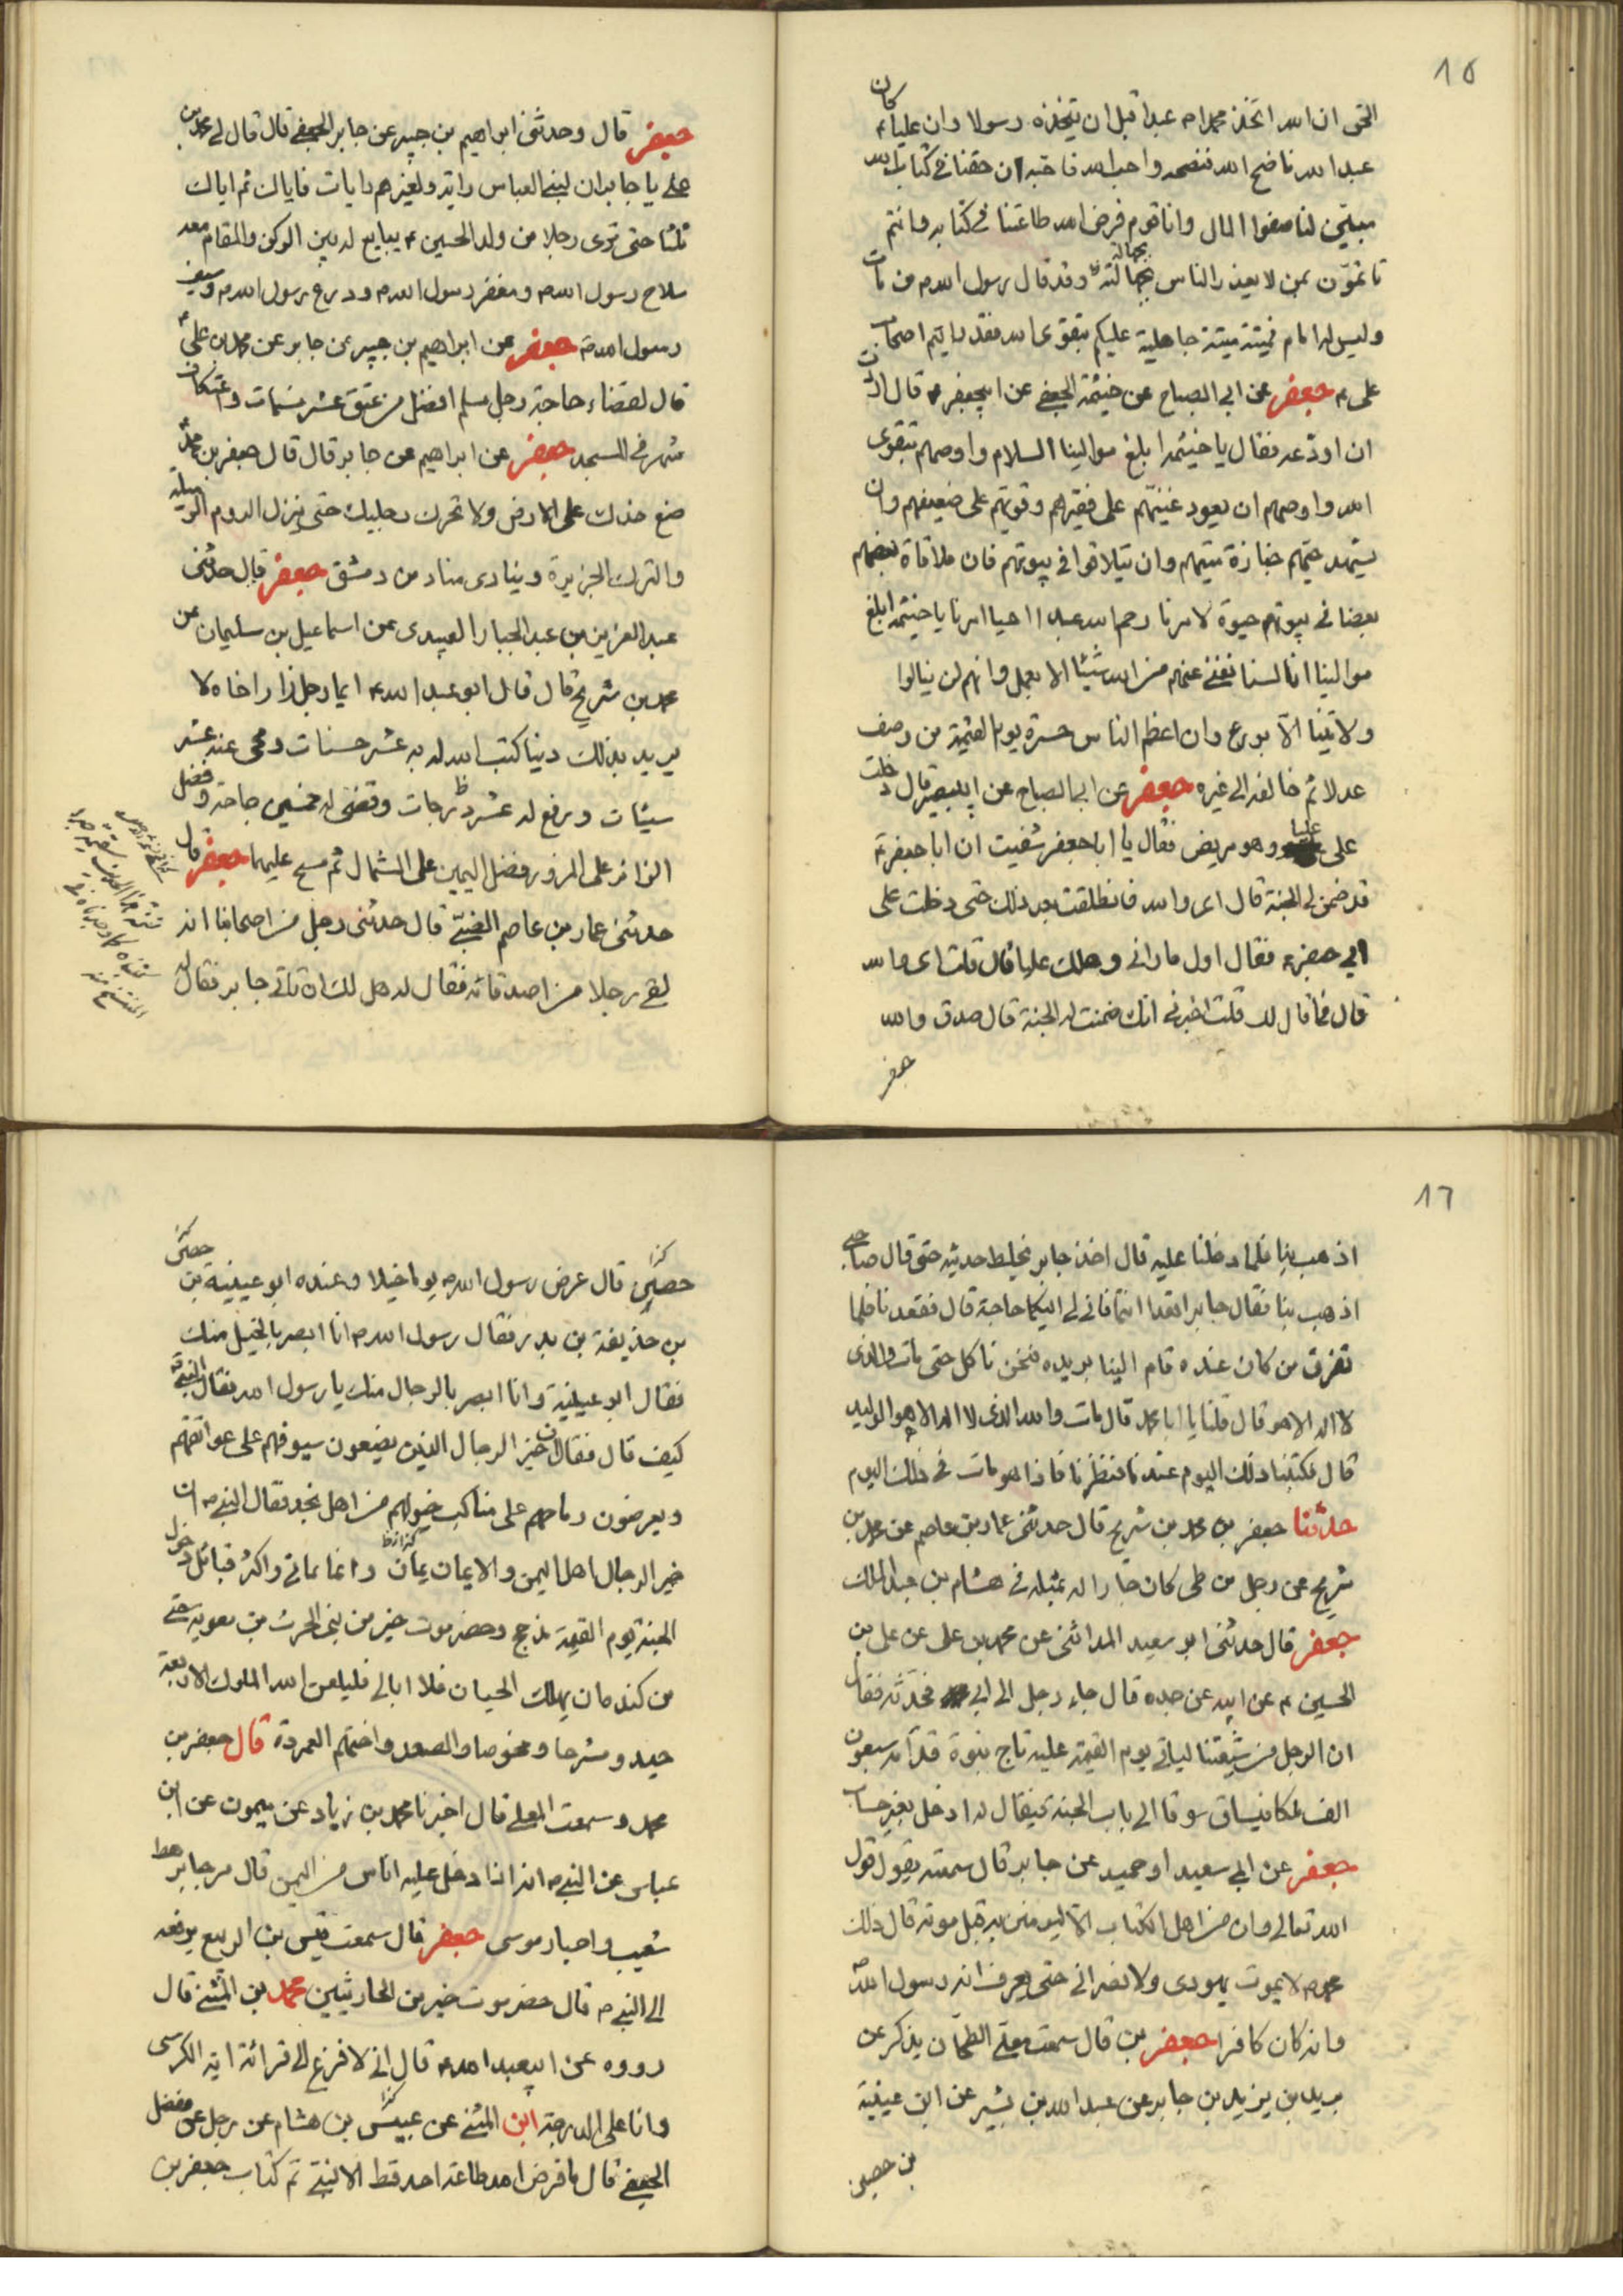 15
كان
الحق ان الله اتخذ محمدا ص عبدا قبل ان يتخذه رسولا وان عليا ع
عبد الله ناصح الله فنصحه واحب الله فاحبه ان حقنا في كتاب الله
مبين لنا صفوا المال وانا قوم فرض الله طاعتنا في كتابه وانتم
تأتمون بمن لا يعذر الناس بجهالته وقد قال رسول الله ص من مات
بجهالة
وليس له امام فميتته ميتة جاهلية عليكم بتقوى الله فقد رايتم اصحاب
على ع جعفر عن ابي الصباح عن خيثمة الجعفي عن ابيجعفر ع قال اردت
ان اودعه فقال يا خيثمه ابلغ موالينا السلام واوصهم بتقوى
الله واوصهم ان يعود غنيهم على فقيرهم وقويهم على ضعيفهم وان
يشهد حيهم جنازة ميتهم وان يتلاقوا في بيوتهم فان ملاقاة بعضهم
بعضا في بيوتهم حيوة لامرنا رحم الله عبدا احيا امرنا يا خيثمه ابلغ
موالينا انا لسنا نغني عنهم من الله شيئا الا بعمل وانهم لن ينالوا
ولايتنا الا بورع وان اعظم الناس حسرة يوم القيمة من وصف
عدلا ثم خالفه الى غيره جعفر عن ابي الصباح عن ابيبصير قال دخلت
على علبا وهو مريض فقال يا ابا جعفر شفيت ان ابا جعفر ع
قد ضمن لي الجنة قال اي والله فانطلقت بعد ذلك حتى دخلت على
ابي جعفر ع فقال اول ما راني وهلك علبا قال قلت اي والله
قال فما قال لك قلت اخبرني انك ضمنت له الجنة قال صدق والله
جعفر
جعفر قال وحدثني ابراهيم بن جبير عن جابر الجعفي قال قال لي محمد بن
على يا جابر ان لبني العباس راية ولغيرهم رايات فاياك ثم اياك
ثلثا حتى ترى رجلا من ولد الحسين ع يبايع له بين الركن والمقام معه
سلاح رسول الله ص ومغفر رسول الله ص ودرع رسول الله ص وسيف
رسول الله ص جعفر عن ابراهيم بن جبير عن جابر عن محمد بن علي ع
قال لقضاء حاجة رجل مسلم افضل من عتق عشر نسمات واعتكاف
شهر في المسجد جعفر عن ابراهيم عن جابر قال قال جعفر بن محمد
ضع خدك على الارض ولا تحرك رجليك حتى ينزل الروم الرميلة
والترك الجزيرة وينادى مناد من دمشق جعفر قال حدثني
عبد العزيز بن عبد الجبار العبيدي عن اسماعيل بن سليمان عن
محمد بن شريح قال قال ابو عبد الله ع ايما رجل زار اخاه لا
يريد بذلك دينا كتب الله له به عشر حسنات ومحى عنه عشر
سيئات ورفع له عشر درجات وقضى له خمسين حاجة وفضل
الزائر على المزور فضل اليمين على الشمال ثم مسح عليهما جعفر قال
حدثني عمار بن عاصم الضبي قال حدثني رجل من اصحابنا انه
لقي رجلا من اصدقائه فقال له هل لك ان تاتي جابر فقال له
16
اذهب بنا فلما دخلنا عليه قال اخذ جابر يخلط حديثه حتى قال صاحبي
اذهب بنا فقال جابر اقعدا انتما فاني لي اليكما حاجة قال فقعدنا فلما
تفرق من كان عنده قام الينا بريده فنحن ناكل حتى مات والذي
لا اله الا هو قال قلنا يا ابا محمد قال مات والله الذي لا اله الا هو الوليد
قال فكتبنا ذلك اليوم عندنا فنظرنا فاذا هو مات في ذلك اليوم
حدثنا جعفر بن محمد بن شريح قال حدثني عمار بن عاصم عن محمد بن
شريح عن رجل من طى كان جارا له بمثله في هشام بن عبد الملك
جعفر قال حدثني ابو سعيد المدائني عن محمد بن على عن على بن
الحسين ع عن ابيه عن جده قال جاء رجل الى ابي فحدثه فقال
ان الرجل من شيعتنا لياتي يوم القيمة عليه تاج نبوة قدامه سبعون
الف ملكا يساق سوقا الى باب الجنة فيقال له ادخل بغير حساب
جعفر عن ابي سعيد او حميد عن جابر قال سمعته يقول قول
الله تعالى وان من اهل الكتاب الا ليومنن به قبل موته قال ذلك
محمد ص لا يموت يهودي ولا نصراني حتى يعرف انه رسول الله
وانه كان كافرا جعفر بن قال سمعت معلى الطحان يذكر عن
بريد بن يزيد بن جابر عن عبد الله بن بشير عن ابن عيينة
بن حصين
حصين قال عرض رسول الله ص يوما خيلا وعنده ابو عيينة بن
كذا
حصن
بن حذيفة بن بدر فقال رسول الله ص انا ابصر بالخيل منك
فقال ابو عيينة وانا ابصر بالرجال منك يا رسول الله فقال النبي ص
كيف قال فقال ان خير الرجال الذين يضعون سيوفهم على عواتقهم
ويعرضون رماحهم على مناكب خيولهم من اهل نجد فقال النبي ص ان
خير الرجال اهل اليمن والايمان يمان وانا يماني واكثر قبائل دخول
الجنة يوم القيمة مذحج وحضرموت خير من بني الحرث بن معويه حى
من كنده ان يهلك الحيان فلا ابالي فليلعن الله الملوك الاربعة
حمد ومشرحا ومخوصا والصعد واختهم العمردة قال جعفر بن
محمد وسمعت المعلى قال اخبرنا محمد بن زياد عن ميمون عن ابن
عباس عن النبي ص انه اذا دخل عليه اناس من اليمن قال مرحبا برهط
شعيب واحبار موسى جعفر قال سمعت قيس بن الربيع يرفعه
الى النبي ص قال حضرموت خير من الحارثيين محمد بن المثنى قال
رووه عن ابيعبد الله ع قال اني لافزع الى قرائة اية الكرسي
وانا على الدرجة ابن المثنى عن عبيس بن هشام عن رجل عن مفضل
الجعفي قال ما فرض الله طاعة احد قط الا لنبي تم كتاب جعفر بن